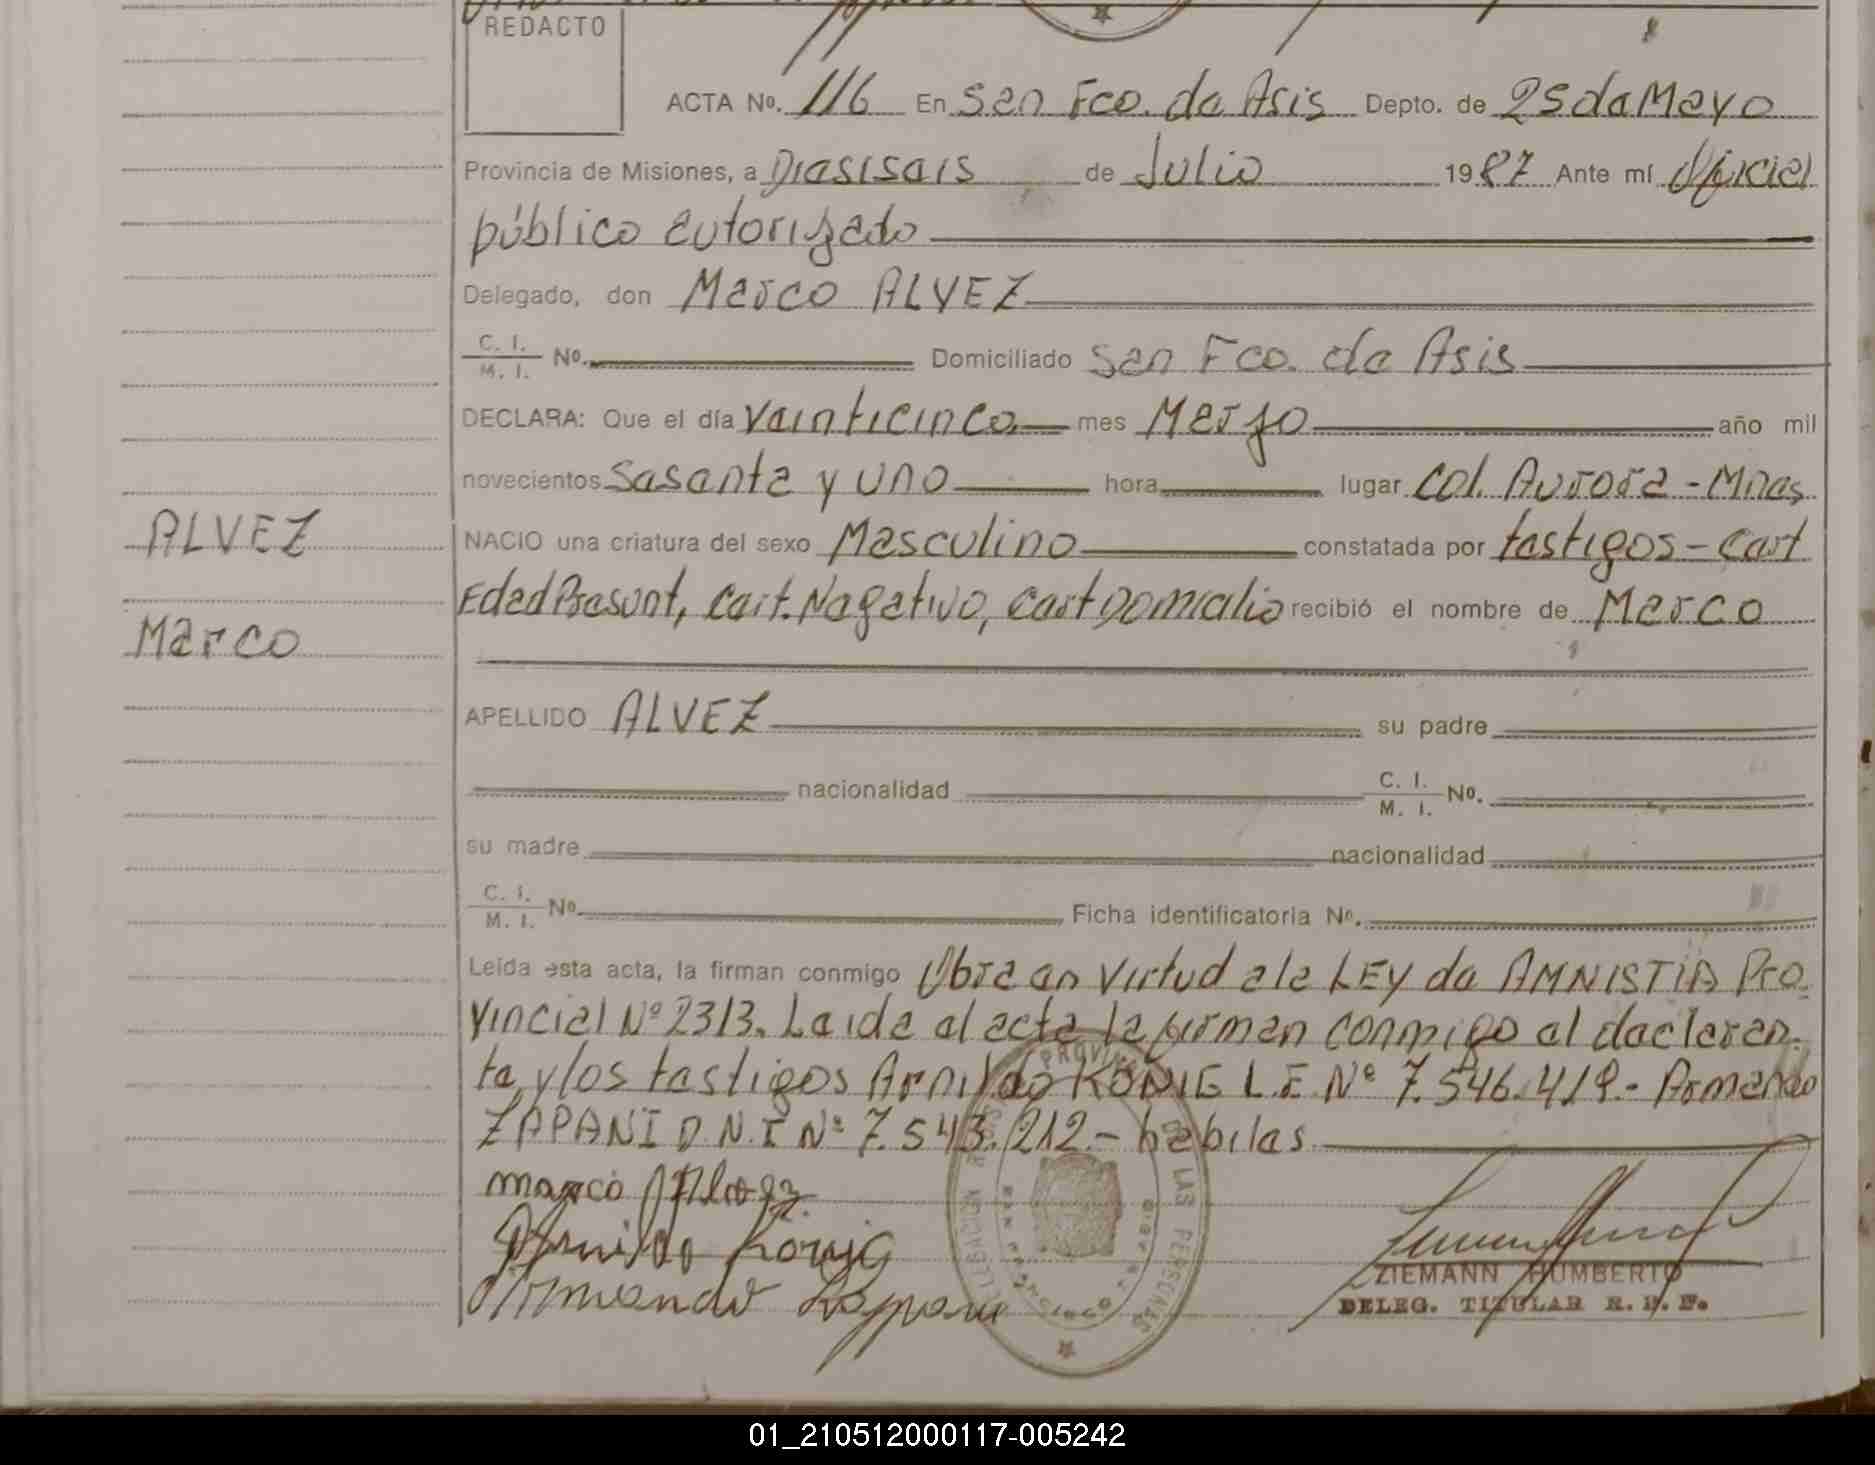 REDACTO
ACTA No. 116 En San Fco. de Asis Depto. de 25 de Mayo
Provincia de Misiones, a Dieciseis de Julio 1987 Ante mí Oficial
público autorizado
Delegado, don Marco ALVEZ
C. I. / M. I. No. Domiciliado San Fco. de Asis
DECLARA: Que el día veinticinco mes Marzo año mil
novecientos Sesenta y uno hora lugar Col. Aurora - Mnes
ALVEZ
NACIO una criatura del sexo Masculino constatada por testigos - Cert
Edad Presunt, Cert. Negativo, Cert Domicilio recibió el nombre de Marco
Marco
APELLIDO ALVEZ su padre
nacionalidad C. I. / M. I. No.
su madre nacionalidad
C. I. / M. I. No. Ficha identificatoria No.
Leída esta acta, la firman conmigo Obra en Virtud a la LEY de AMNISTIA Pro-
vincial Nº 2313. Leida el acta la firman conmigo el declaran-
te y los testigos Arnildo KONIG L.E. Nº 7.546.419.- Armando
ZAPANI D.N.I Nº 7.543.212.- habiles
marco Alvez
Arnildo Konig
Armando Zapani
LAS PERSONAS
ZIEMANN HUMBERTO
DELEG. TITULAR R. P. P.
01_210512000117-005242